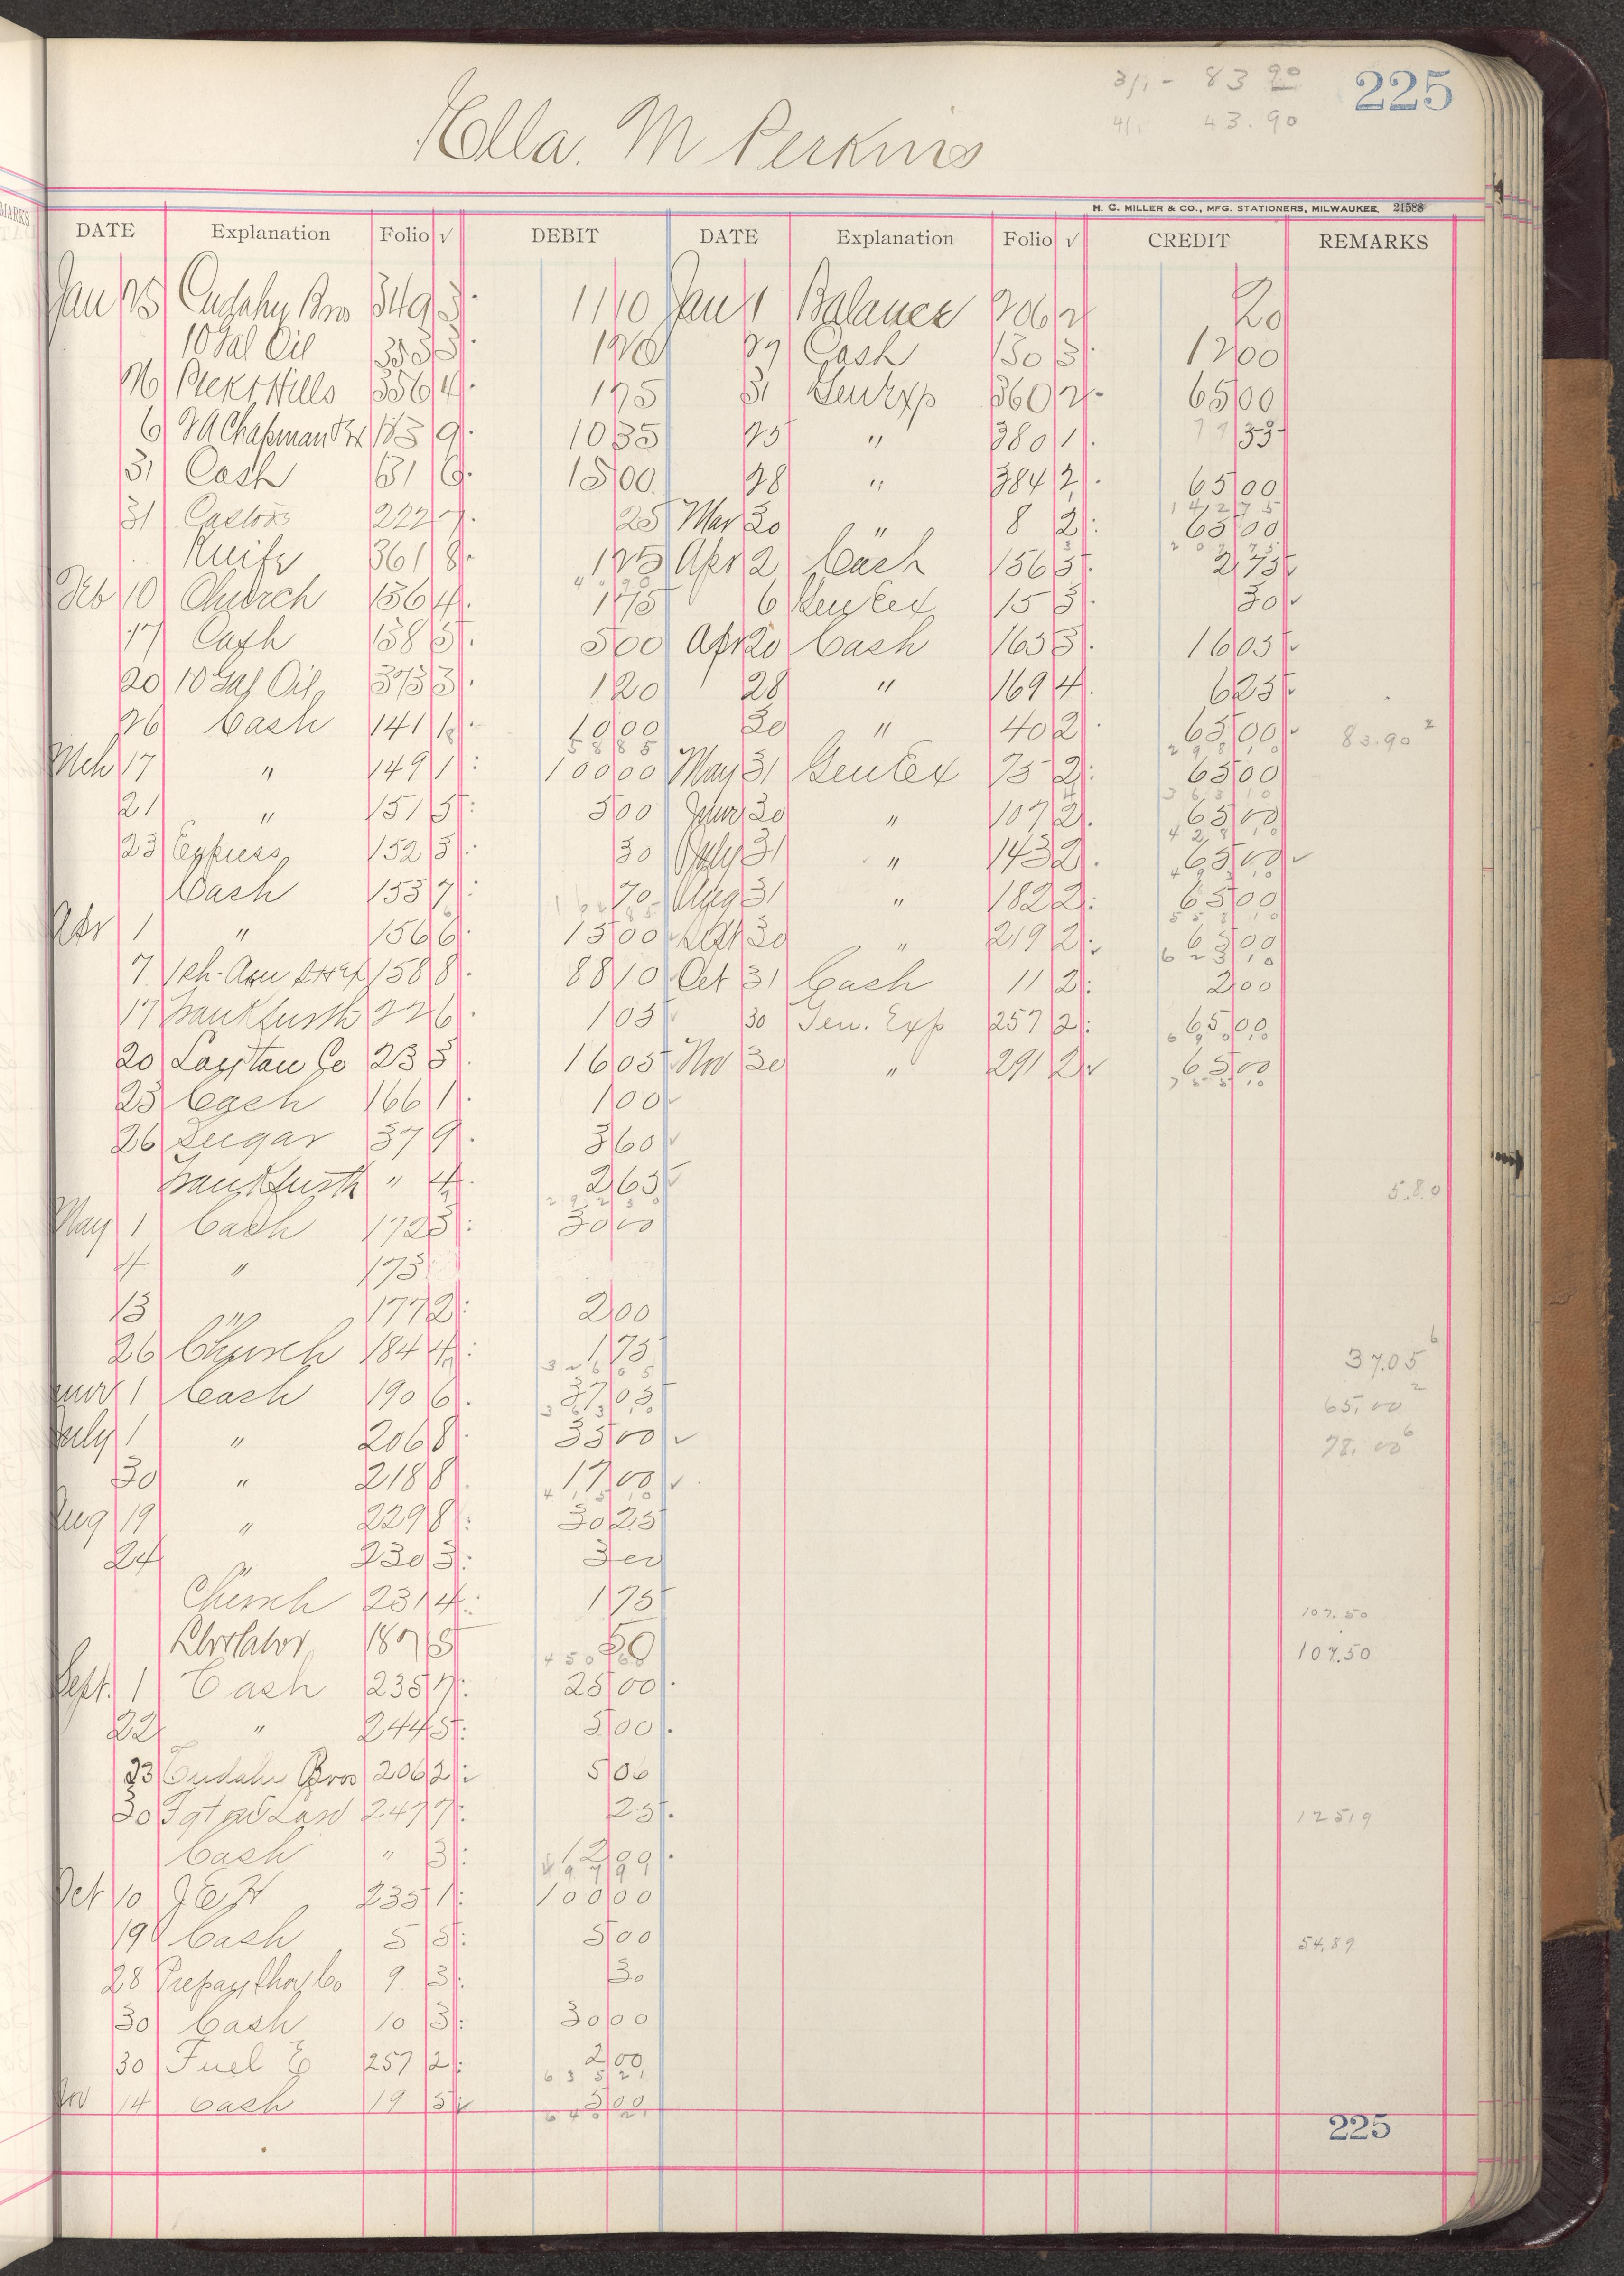 3/1 - 83 90
225
4/1 43.90
Ella. M Perkins
H. C. MILLER & CO., MFG. STATIONERS, MILWAUKEE 21588
MARKS
DATE Explanation Folio √ DEBIT DATE Explanation Folio √ CREDIT REMARKS
Jan 25 Cudahy Bros 349 3 11 10 Jan 1 Balance 206 2 20
10 Gal Oil 353 3 1 20 27 Cash 130 3 12 00
26 356 4 1 25 31 Gen Exp 360 2 65 00
6 Chapman 183 9 10 35 25 " 380 1 33
31 Cash 131 6 15 00 28 " 384 2 65 00
31 Castors 222 7 25 Mar 30 " 8 2 65 00
Knife 361 8 1 25 Apr 2 Cash 156 5 2 75
Feb 10 Church 136 4 1 75 6 Gen Ex 15 3 30
17 Cash 138 5 5 00 Apr 20 Cash 163 3 16 05
20 10 Gal Oil 373 3 1 20 28 " 169 4 6 25
26 Cash 141 1 10 00 30 " 40 2 65 00 83.90 2
Mch 17 " 149 1 100 00 May 31 Gen Ex 75 2 65 00
21 " 151 5 5 00 June 30 " 107 2 65 00
23 Express 152 3 30 July 31 " 143 2 65 00
Cash 153 7 70 Aug 31 " 182 2 65 00
Apr 1 " 156 6 15 00 Sept 30 " 219 2 65 00
7 158 8 88 10 Oct 31 Cash 11 2 2 00
17 Frankfurth 22 6 1 05 30 Gen. Exp 257 2 65 00
20 Layton Co 23 5 16 05 Nov 30 " 291 2 65 00
25 Cash 166 1 1 00
26 Sugar 37 9 3 60
Frankfurth " 4 2 65 5.80
May 1 Cash 172 3 30 00
4 " 173
13 " 177 2 2 00
26 Church 184 4 1 75 37.05 6
June 1 Cash 190 6 37 05 65.00 2
July 1 " 206 8 35 00 78.00 6
30 " 218 8 17 00
Aug 19 " 229 8 30 25
24 " 230 3 3 00
Church 231 4 1 75 107.50
187 5 50 107.50
Sept. 1 Cash 235 7 25 00
22 " 244 5 5 00
23 Cudahy Bros 206 2 5 06
30 247 7 25 1251 9
Cash " 3 12 99
Oct 10 235 1 100 00
19 Cash 5 5 5 00 54.89
28 Prepay 9 3 30
30 Cash 10 3 30 00
30 Fuel 257 2 2 00
Nov 14 Cash 19 5 5 00
225